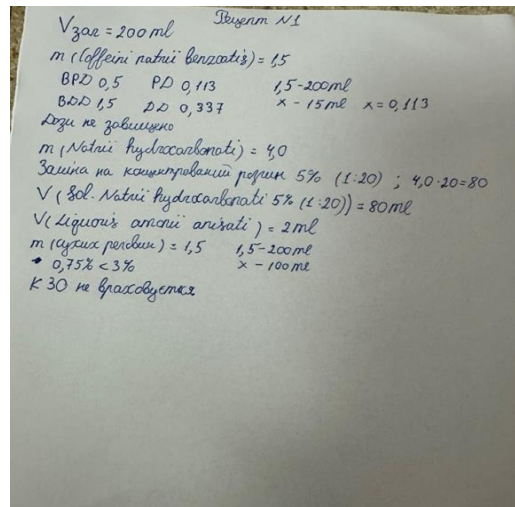 Рецепт N1
Vзаг = 200 ml
m (Coffeini natrii benzoatis) = 1,5
ВРД 0,5 РД 0,113 1,5 - 200ml
ВДД 1,5 ДД 0,337 x - 15ml x = 0,113
Дози не завищено
m (Natrii hydrocarbonati) = 4,0
Заміна на концентрований розчин 5% (1:20) ; 4,0·20=80
V (Sol. Natrii hydrocarbonati 5% (1:20)) = 80 ml
V (Liquoris amonii anisati) = 2 ml
m (сухих речовин) = 1,5 1,5-200ml
0,75% < 3% x - 100 ml
КЗО не враховується